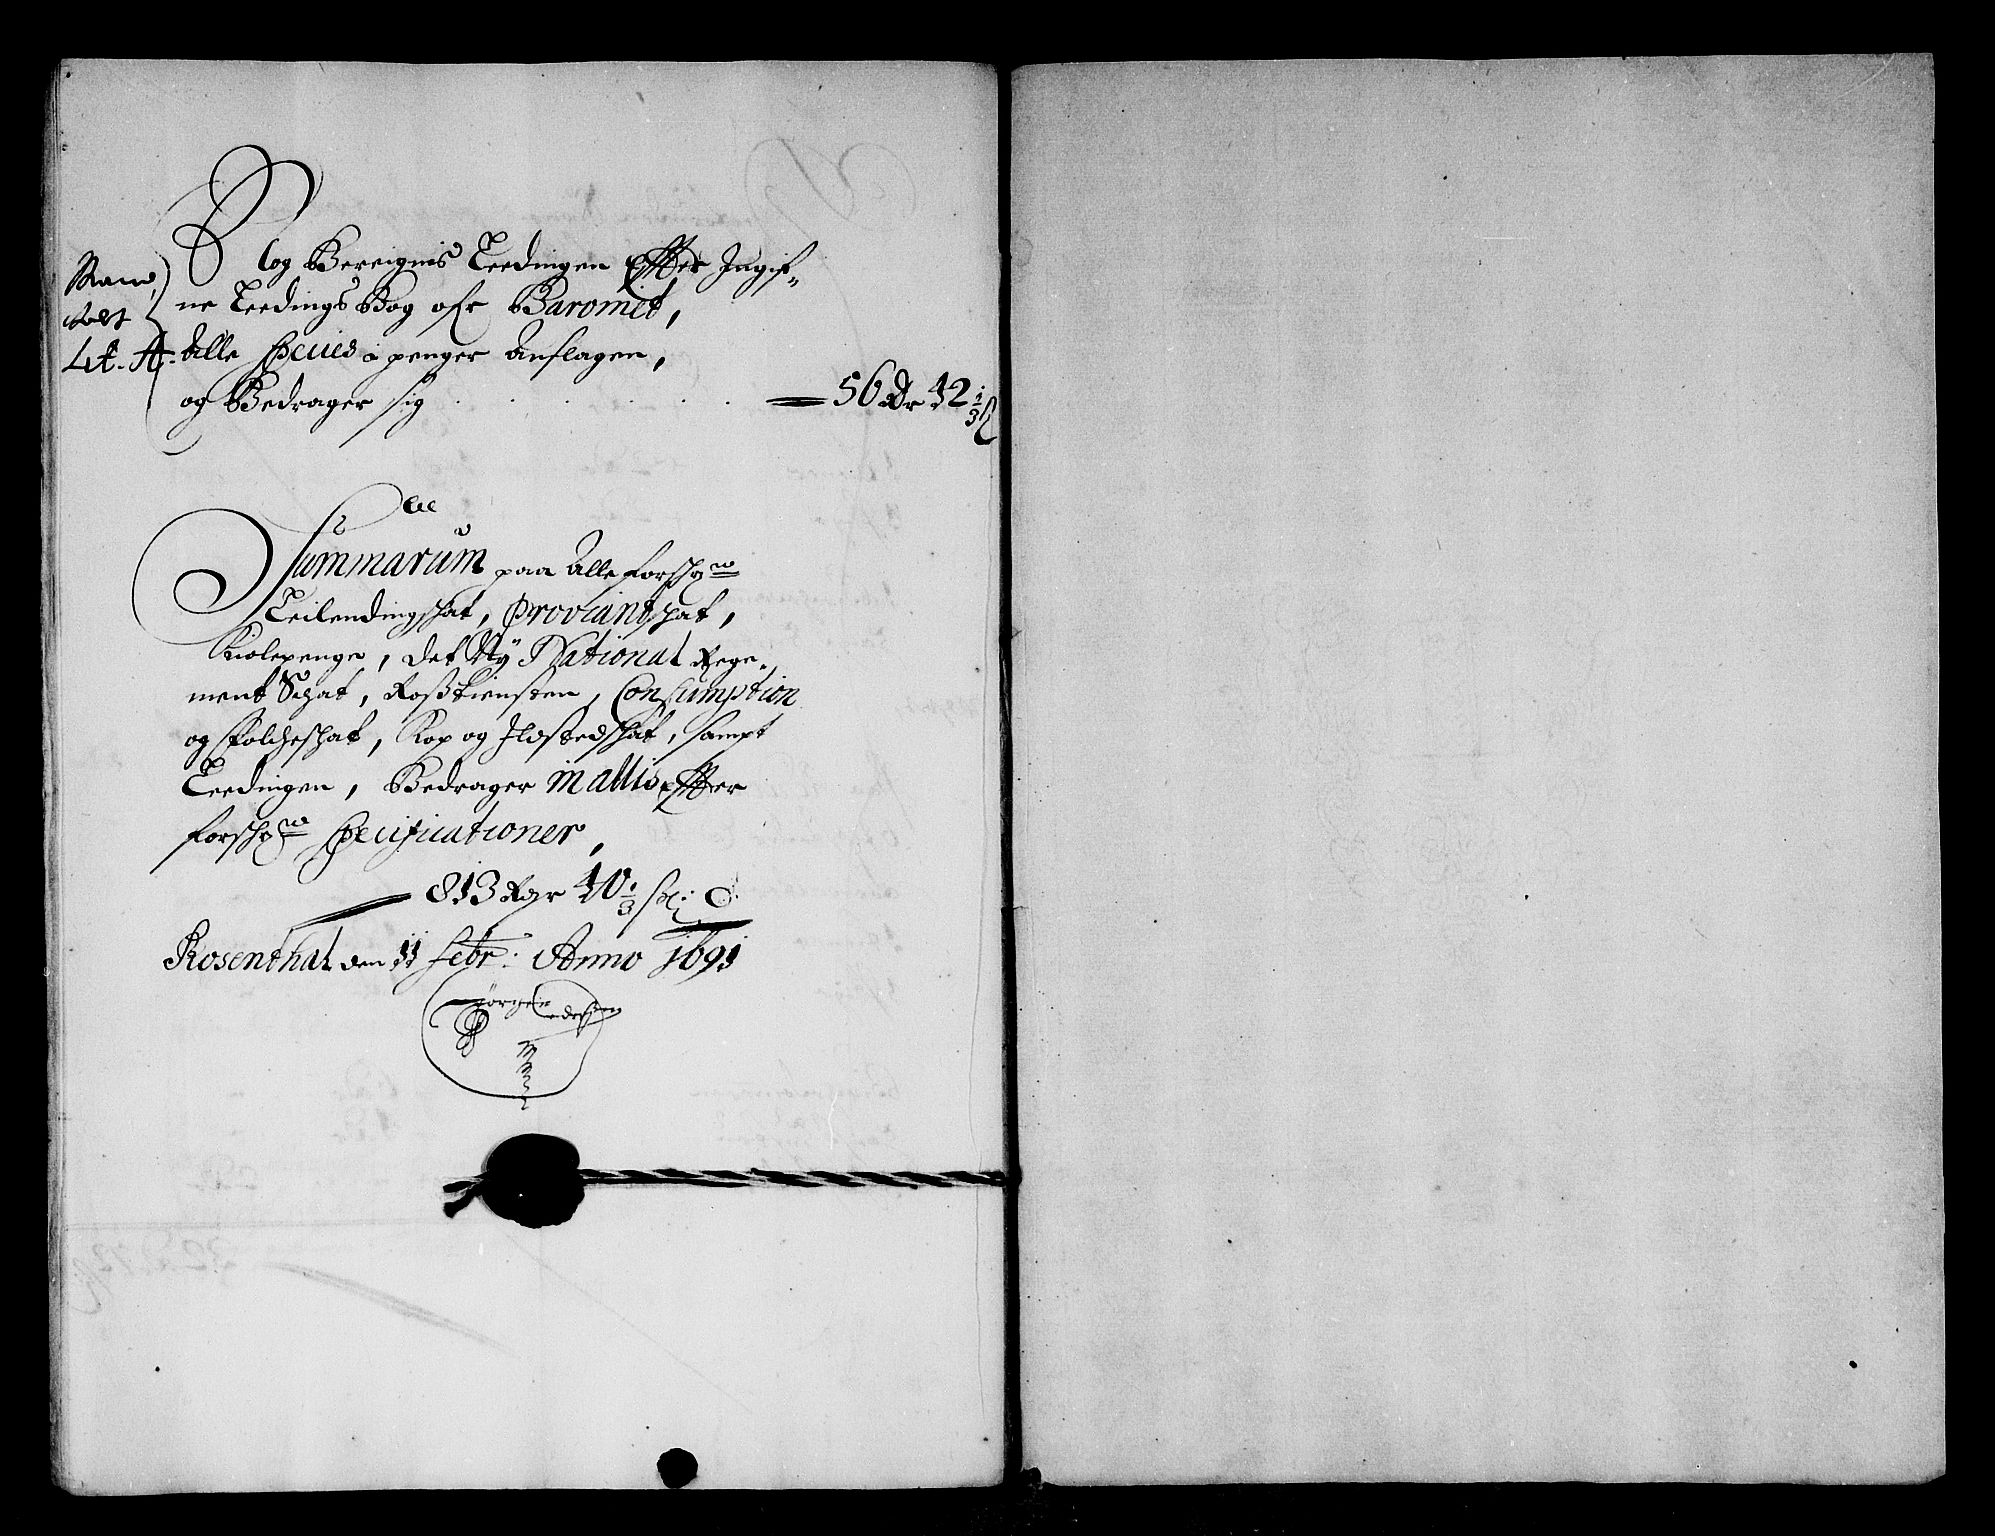 og Bereignis Leedingen Effter Ingif-
ne Leedings Bog ofr Baromet,
Lit. A. Alle Species i penger Anslagen,
og Bedrager sig . . . . . 56 Dr 42 1/3 ß
Summarum paa Alle forschrne
Leilendingschat, Proviantschat,
Kiolepenge, det Ny National Rege-
ment Schat, Rostienesten, Consumption
og Folcheschat, Kop og Ildstedschat, sampt
Leedingen, Bedrager in allis Effter
forschrne Specificationer,
813 Rdr 40 1/3 ß
Rosenthal den 11 Febr: Anno 1691
Jørgen